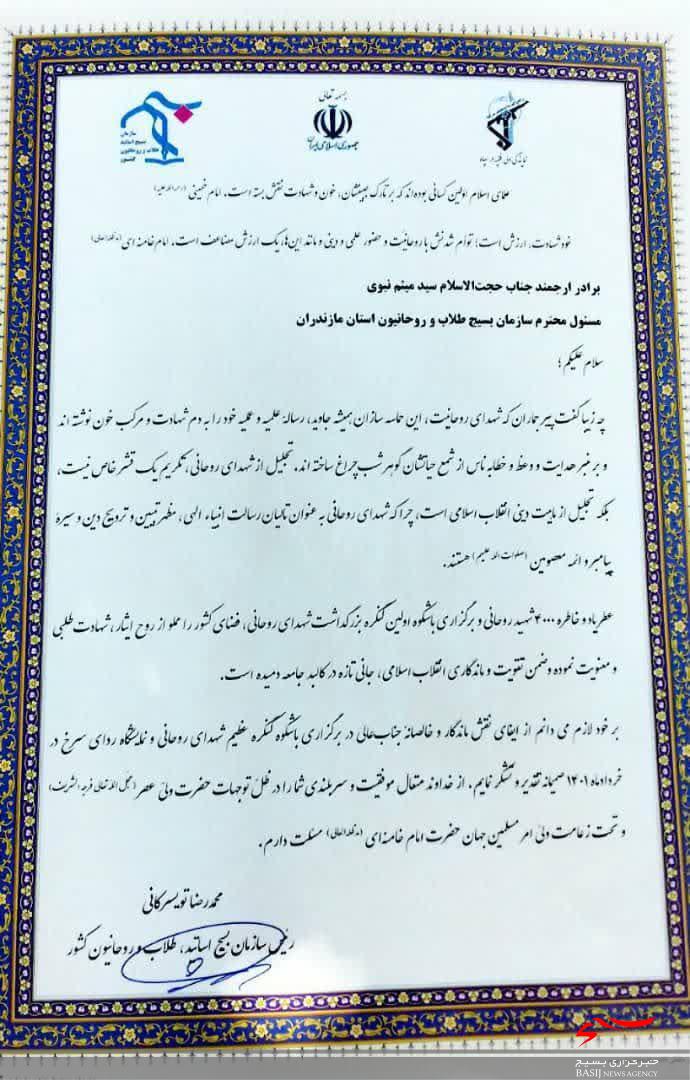 بسمه تعالی
جمهوری اسلامی ایران
سازمان
بسیج اساتید
طلاب و روحانیون
کشور
نمایندگی ولی فقیه در سپاه
علمای اسلام اولین کسانی بوده‌اند که بر تارک جبینشان، خون و شهادت نقش بسته است. امام خمینی (ره)
خود شهادت، ارزش است؛ توأم شدنش با روحانیّت و حضور علمی و دینی و مانند این‌ها، یک ارزش مضاعف است. امام خامنه ای (مدظله‌العالی)
برادر ارجمند جناب حجت‌الاسلام سید میثم نبوی
مسئول محترم سازمان بسیج طلاب و روحانیون استان مازندران
سلام علیکم؛
چه زیبا گفت پیر جماران که شهدای روحانیت، این حماسه سازان همیشه جاوید، رسالهٔ علمیه و عملیه خود را به دم شهادت و مرکب خون نوشته اند
و بر منبر هدایت و وعظ و خطابه ناس از شمع حیاتشان گوهر شب چراغ ساخته اند. تجلیل از شهدای روحانی، تکریم یک قشر خاص نیست،
بلکه تجلیل از ماهیت دینی انقلاب اسلامی است، چرا که شهدای روحانی به عنوان تالیان رسالت انبیاء الهی، مظهر تبیین و ترویج دین و سیرهٔ
پیامبر و ائمه معصومین (صلوات الله علیهم) هستند.
عطر یاد و خاطره ۴۰۰۰ شهید روحانی و برگزاری باشکوه اولین کنگره بزرگداشت شهدای روحانی، فضای کشور را مملو از روح ایثار، شهادت طلبی
و معنویت نموده و ضمن تقویت و ماندگاری انقلاب اسلامی، جانی تازه در کالبد جامعه دمیده است.
بر خود لازم می دانم از ایفای نقش ماندگار و خالصانهٔ جنابعالی در برگزاری باشکوه کنگره عظیم شهدای روحانی و نمایشگاه ردای سرخ در
خردادماه ۱۴۰۱ صمیمانه تقدیر و تشکر نمایم. از خداوند متعال موفقیت و سربلندی شما را در ظل توجهات حضرت ولیّ عصر (عجل الله تعالی فرجه الشریف)
و تحت زعامت ولیّ امر مسلمین جهان حضرت امام خامنه‌ای (مدظله‌العالی) مسئلت دارم.
محمدرضا تویسرکانی
رئیس سازمان بسیج اساتید، طلاب و روحانیون کشور
بسیج
خبرگزاری بسیج
BASIJ NEWS AGENCY